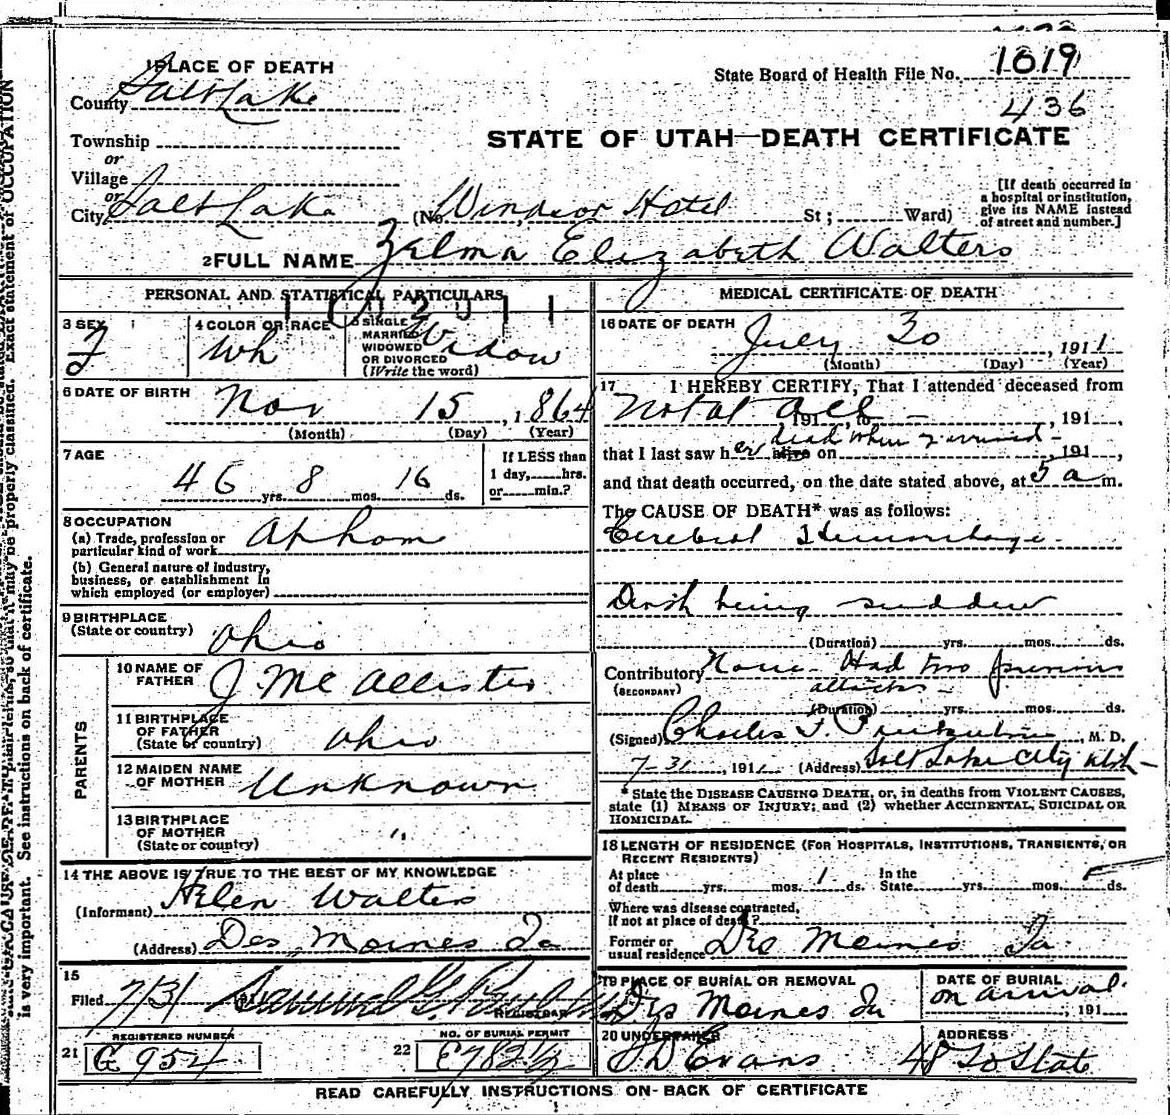 1 PLACE OF DEATH
County Salt Lake
State Board of Health File No. 1619
436
Township
or
Village
or
City Salt Lake
STATE OF UTAH—DEATH CERTIFICATE
(No. Windsor Hotel St; Ward)
[If death occurred in a hospital or institution, give its NAME instead of street and number.]
2 FULL NAME Zelma Elizabeth Walters
PERSONAL AND STATISTICAL PARTICULARS
3 SEX F
4 COLOR OR RACE Wh
5 SINGLE MARRIED WIDOWED OR DIVORCED (Write the word) Widow
6 DATE OF BIRTH Nov 15, 1864
(Month) (Day) (Year)
7 AGE 46 yrs. 8 mos. 16 ds.
If LESS than 1 day, hrs. or min.?
8 OCCUPATION
(a) Trade, profession or particular kind of work At home
(b) General nature of industry, business, or establishment in which employed (or employer)
9 BIRTHPLACE (State or country) Ohio
PARENTS
10 NAME OF FATHER J. McAllister
11 BIRTHPLACE OF FATHER (State or country) Ohio
12 MAIDEN NAME OF MOTHER Unknown
13 BIRTHPLACE OF MOTHER (State or country) "
14 THE ABOVE IS TRUE TO THE BEST OF MY KNOWLEDGE
(Informant) Helen Walters
(Address) Des Moines Ia
15
Filed 7/31 Samuel G. REGISTRAR
REGISTERED NUMBER
21 G 954
NO. OF BURIAL PERMIT
22 E782½
MEDICAL CERTIFICATE OF DEATH
16 DATE OF DEATH July 30, 1911
(Month) (Day) (Year)
17 I HEREBY CERTIFY, That I attended deceased from
Not at all 191 , to , 191 ,
that I last saw her alive on dead when I arrived , 191 ,
and that death occurred, on the date stated above, at 5 a m.
The CAUSE OF DEATH* was as follows:
Cerebral Hemorrhage
Death being sudden
(Duration) yrs. mos. ds.
Contributory None - Had two previous
(SECONDARY) attacks -
(Duration) yrs. mos. ds.
(Signed) Charles F. , M. D.
7-31, 1911 (Address) Salt Lake City Utah
* State the DISEASE CAUSING DEATH, or, in deaths from VIOLENT CAUSES, state (1) MEANS OF INJURY; and (2) whether ACCIDENTAL, SUICIDAL OR HOMICIDAL.
18 LENGTH OF RESIDENCE (FOR HOSPITALS, INSTITUTIONS, TRANSIENTS, OR RECENT RESIDENTS)
At place of death yrs. mos. 1 ds. In the State yrs. mos. ds.
Where was disease contracted, if not at place of death?
Former or usual residence Des Moines Ia.
19 PLACE OF BURIAL OR REMOVAL Des Moines Ia
DATE OF BURIAL on arrival. , 191
20 UNDERTAKER S D Evans
ADDRESS 48 So State
READ CAREFULLY INSTRUCTIONS ON BACK OF CERTIFICATE
may be properly classified. Exact statement of OCCUPATION
is very important. See instructions on back of certificate.